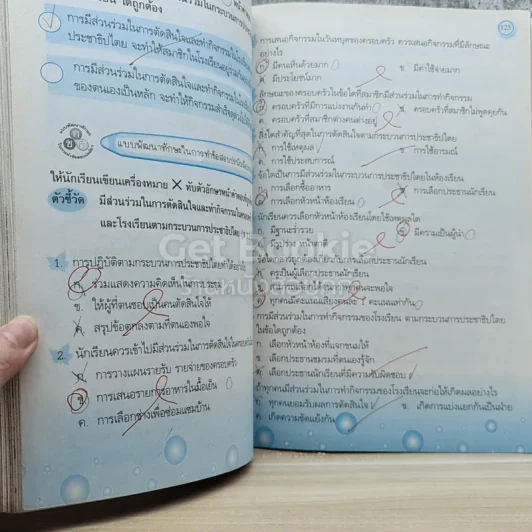 เป็น ได้ถูกต้อง
การมีส่วนร่วมในการตัดสินใจและทำกิจกรรมในวัน
ประชาธิปไตย จะทำให้สมาชิกในโรงเรียนอยู่ร่วมกัน
การมีส่วนร่วมในการตัดสินใจและทำกิจกรรมใน
ของตนเองเป็นหลัก จะทำให้กิจกรรมสำเร็จลุล่วงไป
แบบพัฒนาทักษะในการทำข้อสอบ
ให้นักเรียนเขียนเครื่องหมาย X ทับตัวอักษรหน้าคำตอบที่ถูกต้อง
ตัวชี้วัด
มีส่วนร่วมในการตัดสินใจและทำกิจกรรมใน
และโรงเรียนตามกระบวนการประชาธิปไตย
1. การปฏิบัติตามกระบวนการประชาธิปไตยทำได้อย่าง
ก. ร่วมแสดงความคิดเห็นในการประชุม
ข. ให้ผู้ที่ตนชอบเป็นคนตัดสินใจให้
ค. สรุปข้อตกลงตามที่ตนเองพอใจ
2. นักเรียนควรเข้าไปมีส่วนร่วมในการตัดสินใจ
ก. การวางแผนรายรับ รายจ่ายของครอบครัว
ข. การเสนอรายการอาหารในมื้อเย็น
ค. การเลือกช่างเพื่อซ่อมแซมบ้าน
125
การเสนอกิจกรรมในวันหยุดของครอบครัว ควรเสนอกิจกรรมที่มีลักษณะ
อย่างไร
มีคนเห็นด้วยมาก ข. มีค่าใช้จ่ายมาก
มีประโยชน์มาก
ลักษณะของครอบครัวในข้อใดที่สมาชิกมีส่วนร่วมในการทำกิจกรรม
ครอบครัวที่มีการแบ่งงานกันทำ ข. ครอบครัวที่สมาชิกไม่พูดคุยกัน
ครอบครัวที่สมาชิกต่างคนต่างอยู่
สิ่งใดสำคัญที่สุดในการตัดสินใจตามกระบวนการประชาธิปไตย
การใช้เหตุผล ข. การใช้อารมณ์
การใช้ประสบการณ์
ข้อใดเป็นการมีส่วนร่วมในกระบวนการประชาธิปไตยในห้องเรียน
การเลือกซื้ออาหาร การเลือกประธานนักเรียน
การเลือกหัวหน้าห้องเรียน
นักเรียนควรเลือกหัวหน้าห้องเรียนโดยใช้เหตุผลใด
มีฐานะร่ำรวย มีความเป็นผู้นำ
มีรูปร่าง หน้าตาดี
ข้อใดกล่าวถูกต้องเกี่ยวกับการเลือกประธานนักเรียน
ครูเป็นผู้เลือกประธานนักเรียน
ทุกคนมีคะแนนเสียงคนละ 1 คะแนนเท่ากัน
การมีส่วนร่วมในการทำกิจกรรมของโรงเรียน ตามกระบวนการประชาธิปไตย
ในข้อใดถูกต้อง
ก. เลือกหัวหน้าห้องที่แจกขนมให้
ข. เลือกประธานชมรมที่ตนเองรู้จัก
เลือกประธานนักเรียนที่มีความรับผิดชอบ
ถ้าทุกคนมีส่วนร่วมในการทำกิจกรรมของโรงเรียนจะก่อให้เกิดผลอย่างไร
ทุกคนยอมรับผลการตัดสินใจ ข. เกิดการแบ่งแยกกันเป็นฝ่าย
ค. เกิดความขัดแย้งกัน
Get Bookie